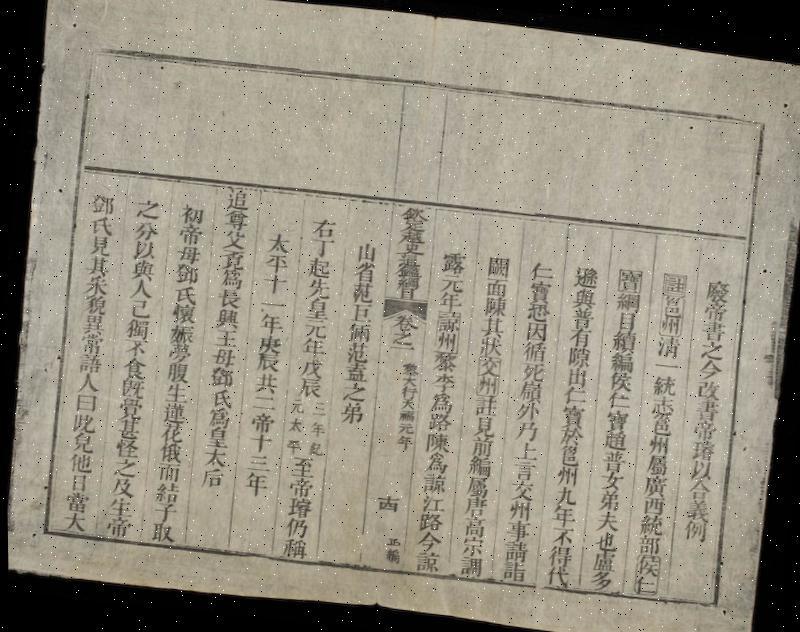 廢帝書之今改書帝璿以合義例
註邕州清一統志邕州屬廣西統部侯仁
寶綱目續編侯仁寶趙普女弟夫也盧多
遜與普有隙出仁寶於邕州九年不得代
仁寶恐因循死嶺外乃上言交州事請詣
闕面陳其狀交州註見前編屬唐高宗調
露元年諒州黎李爲路陳爲諒江路今諒
欽定越史通鑑綱目 卷之一 黎大行天福元年 正編
山省范巨倆范盍之弟
右丁起先皇元年戊辰 二年紀元太平 至帝璿仍稱
太平十一年庚辰共二帝十三年
追尊父爲長興王母鄧氏爲皇太后
初帝母鄧氏懷娠夢腹生蓮花俄而結子取
之分以與人己獨不食既覺甚怪之及生帝
鄧氏見其狀貌異常語人曰此兒他日當大